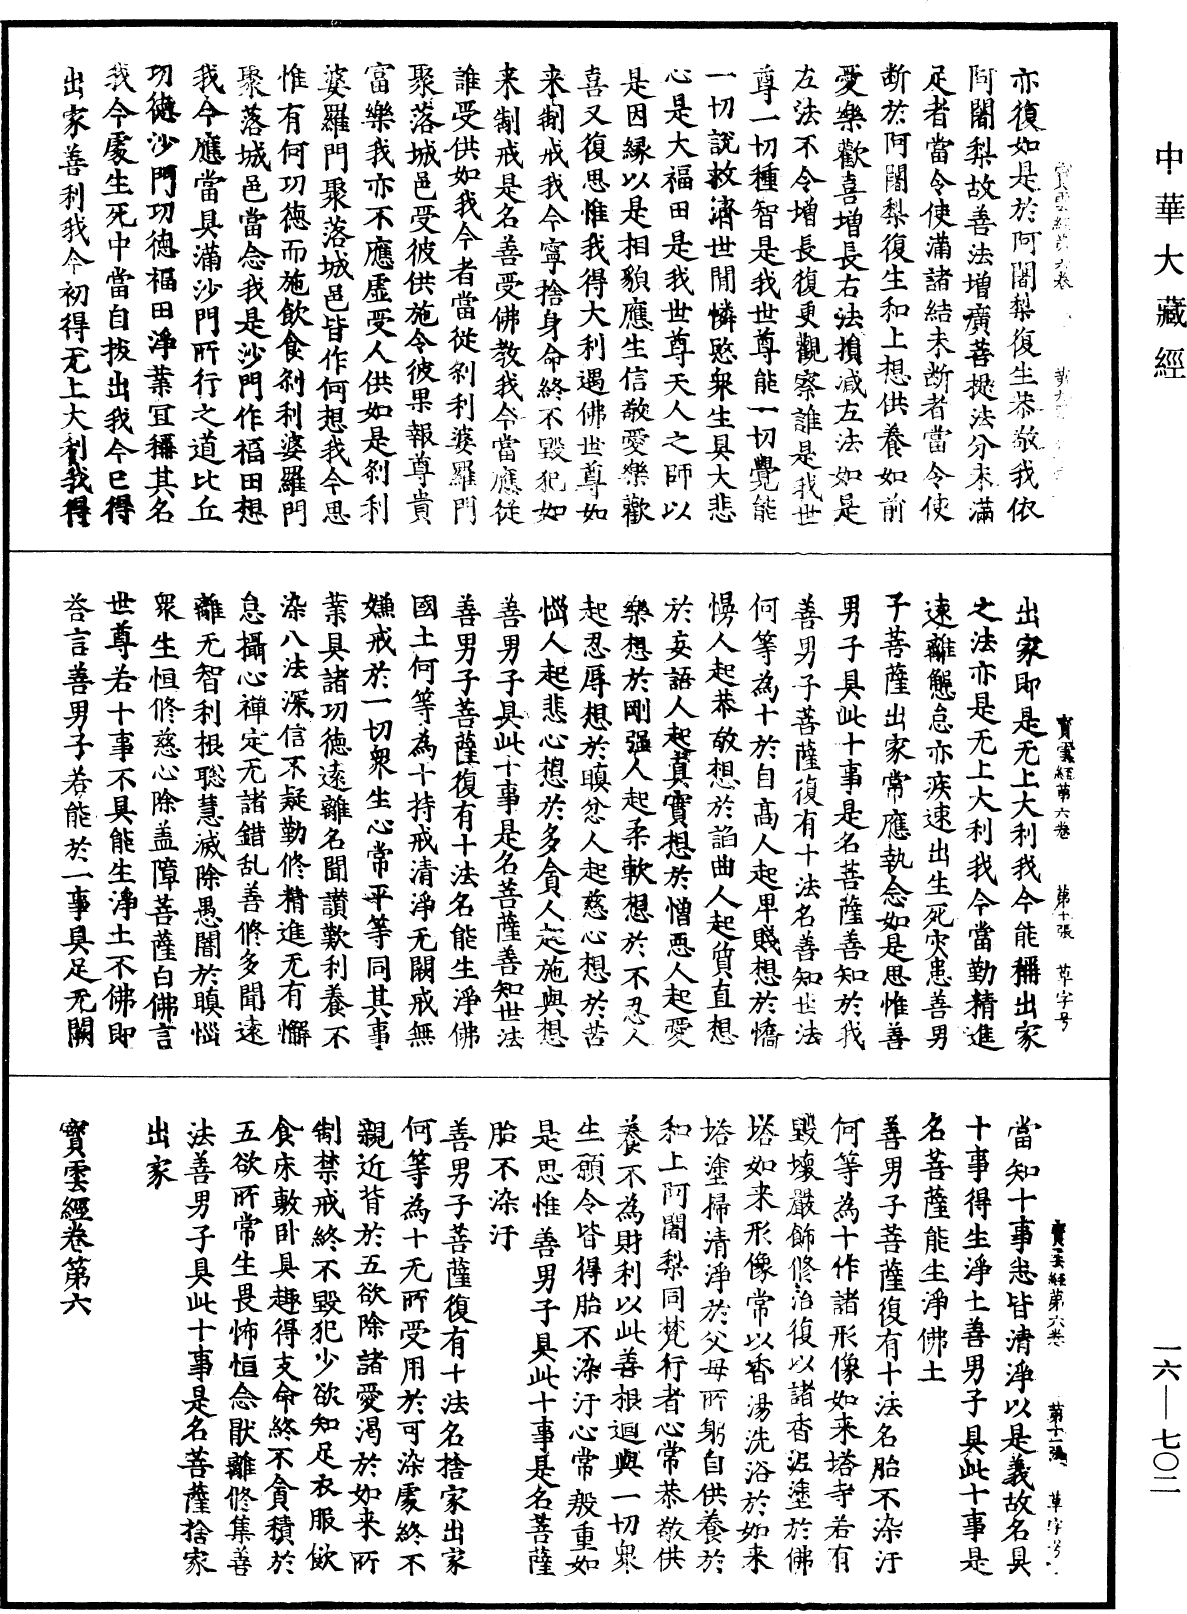 中華大藏經
亦復如是於阿闍梨復生恭敬我依
阿闍梨故善法增廣菩提法分未滿
足者當令使滿諸結未斷者當令使
斷於阿闍梨復生和上想供養如前
愛樂歡喜增長右法損减左法如是
左法不令增長復更觀察誰是我世
尊一切種智是我世尊能一切覺能
一切說救濟世間憐愍衆生具大悲
心是大福田是我世尊天人之師以
是因緣以是相貌應生信敬愛樂歡
喜又復思惟我得大利遇佛世尊如
来制戒我今寧捨身命終不毀犯如
来制戒是名善受佛教我今當應從
誰受供如我今者當從剎利婆羅門
聚落城邑受彼供施令彼果報尊貴
富樂我亦不應虛受人供如是剎利
婆羅門聚落城邑皆作何想我今思
惟有何功德而施飲食剎利婆羅門
聚落城邑當念我是沙門作福田想
我今應當具滿沙門所行之道比丘
功德沙門功德福田淨業宜稱其名
我今處生死中當自拔出我今已得
出家善利我今初得无上大利我得
寶雲經第六卷 第十張 草字号
出家即是无上大利我今能稱出家
之法亦是无上大利我今當勤精進
遠離懈怠亦疾速出生死灾患善男
子菩薩出家常應執念如是思惟善
男子具此十事是名菩薩善知於我
善男子菩薩復有十法名善知世法
何等為十於自高人起卑賤想於憍
慢人起恭敬想於諂曲人起質直想
於妄語人起真實想於憎惡人起愛
樂想於剛强人起柔軟想於不忍人
起忍辱想於瞋忿人起慈心想於苦
惱人起悲心想於多貪人起施與想
善男子具此十事是名菩薩善知世法
善男子菩薩復有十法名能生淨佛
國土何等為十持戒清淨无闕戒無
嫌戒於一切衆生心常平等同其事
業具諸功德遠離名聞讃歎利養不
染八法深信不疑勤修精進无有懈
怠攝心禪定无諸錯乱善修多聞遠
離无智利根聡慧滅除愚闇於瞋惱
衆生恒修慈心除盖障菩薩白佛言
世尊若十事不具能生淨土不佛即
荅言善男子若能於一事具足无闕
寶雲經第六卷 第十一張 草字号
當知十事悉皆清淨以是義故名具
十事得生淨土善男子具此十事是
名菩薩能生淨佛土
善男子菩薩復有十法名胎不染汙
何等為十作諸形像如来塔寺若有
毀壞嚴飾修治復以諸香泥塗於佛
塔如来形像常以香湯洗浴於如来
塔塗掃清淨於父母所躬自供養於
和上阿闍梨同梵行者心常恭敬供
養不為財利以此善根迴與一切衆
生願令皆得胎不染汙心常殷重如
是思惟善男子具此十事是名菩薩
胎不染汙
善男子菩薩復有十法名捨家出家
何等為十无所受用於可染處終不
親近背於五欲除諸愛渴於如来所
制禁戒終不毀犯少欲知足衣服飲
食床敷卧具趣得支命終不貪積於
五欲所常生畏怖恒念猒離修集善
法善男子具此十事是名菩薩捨家
出家
寶雲經卷第六
一六—七〇二